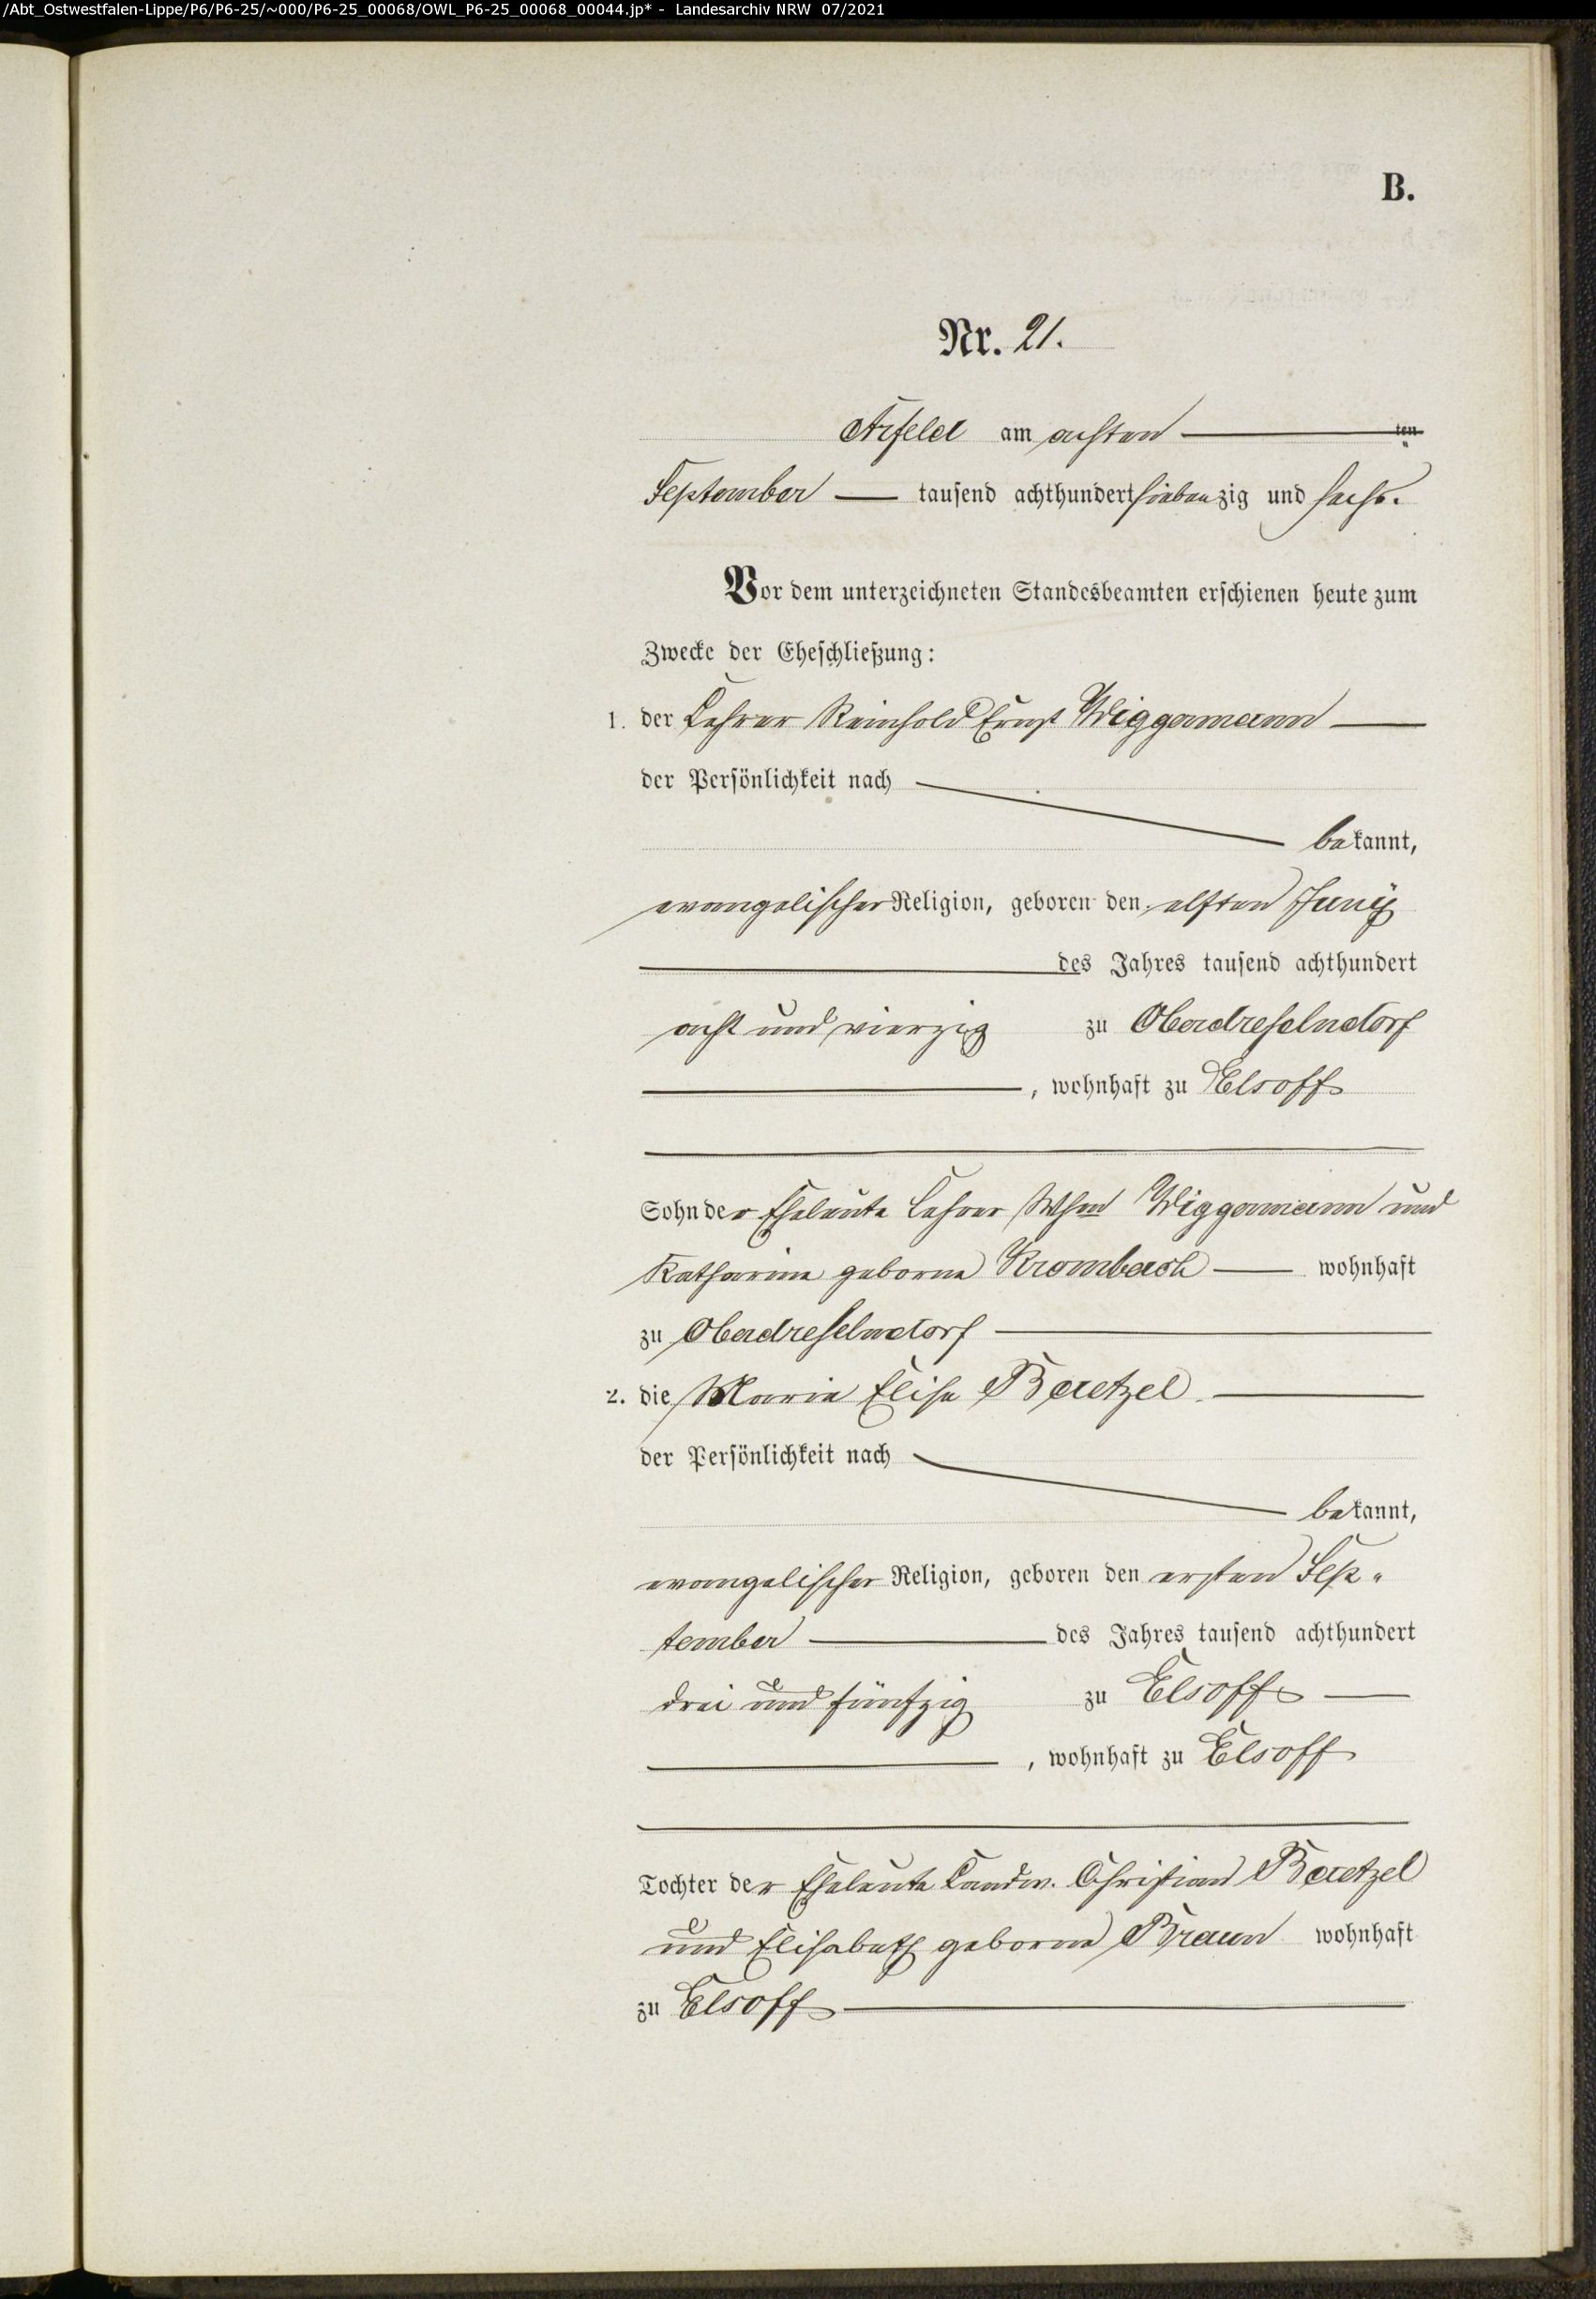 /Abt_Ostwestfalen-Lippe/P6/P6-25/~000/P6-25_00068/OWL_P6-25_00068_00044.jp* - Landesarchiv NRW 07/2021
B.
Nr. 21.
Arfeld am achten ten
September tausend achthundert siebenzig und sechs.
Vor dem unterzeichneten Standesbeamten erschienen heute zum
Zwecke der Eheschließung:
1. der Lehrer Reinhold Ernst Wiggemann
der Persönlichkeit nach
bekannt,
evangelischer Religion, geboren den elften Juny
des Jahres tausend achthundert
acht und vierzig zu Oberdresselndorf
, wohnhaft zu Elsoff
Sohn der Eheleute Lehrer Whm Wiggemann und
Katharine geborne Krombach wohnhaft
zu Oberdresselndorf
2. die Marie Elise Baetzel
der Persönlichkeit nach
bekannt,
evangelischer Religion, geboren den ersten Sep-
tember des Jahres tausend achthundert
drei und fünfzig zu Elsoff
, wohnhaft zu Elsoff
Tochter der Eheleute Landw. Christian Baetzel
und Elisabeth geborne Braun wohnhaft
zu Elsoff